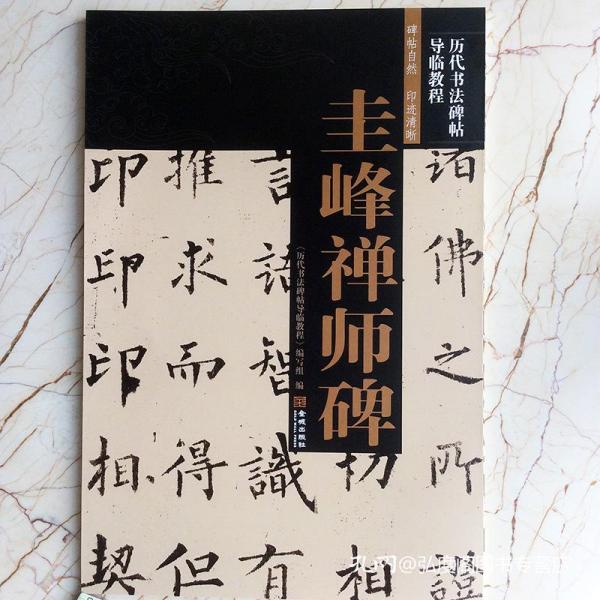 历代书法碑帖
导临教程
碑帖自然 印迹清晰
圭峰禅师碑
《历代书法碑帖导临教程》编写组 编
金城出版社
佛之所證
切相
言語智識有
推求而得但
印印印相契
@弘度阁图书专营店